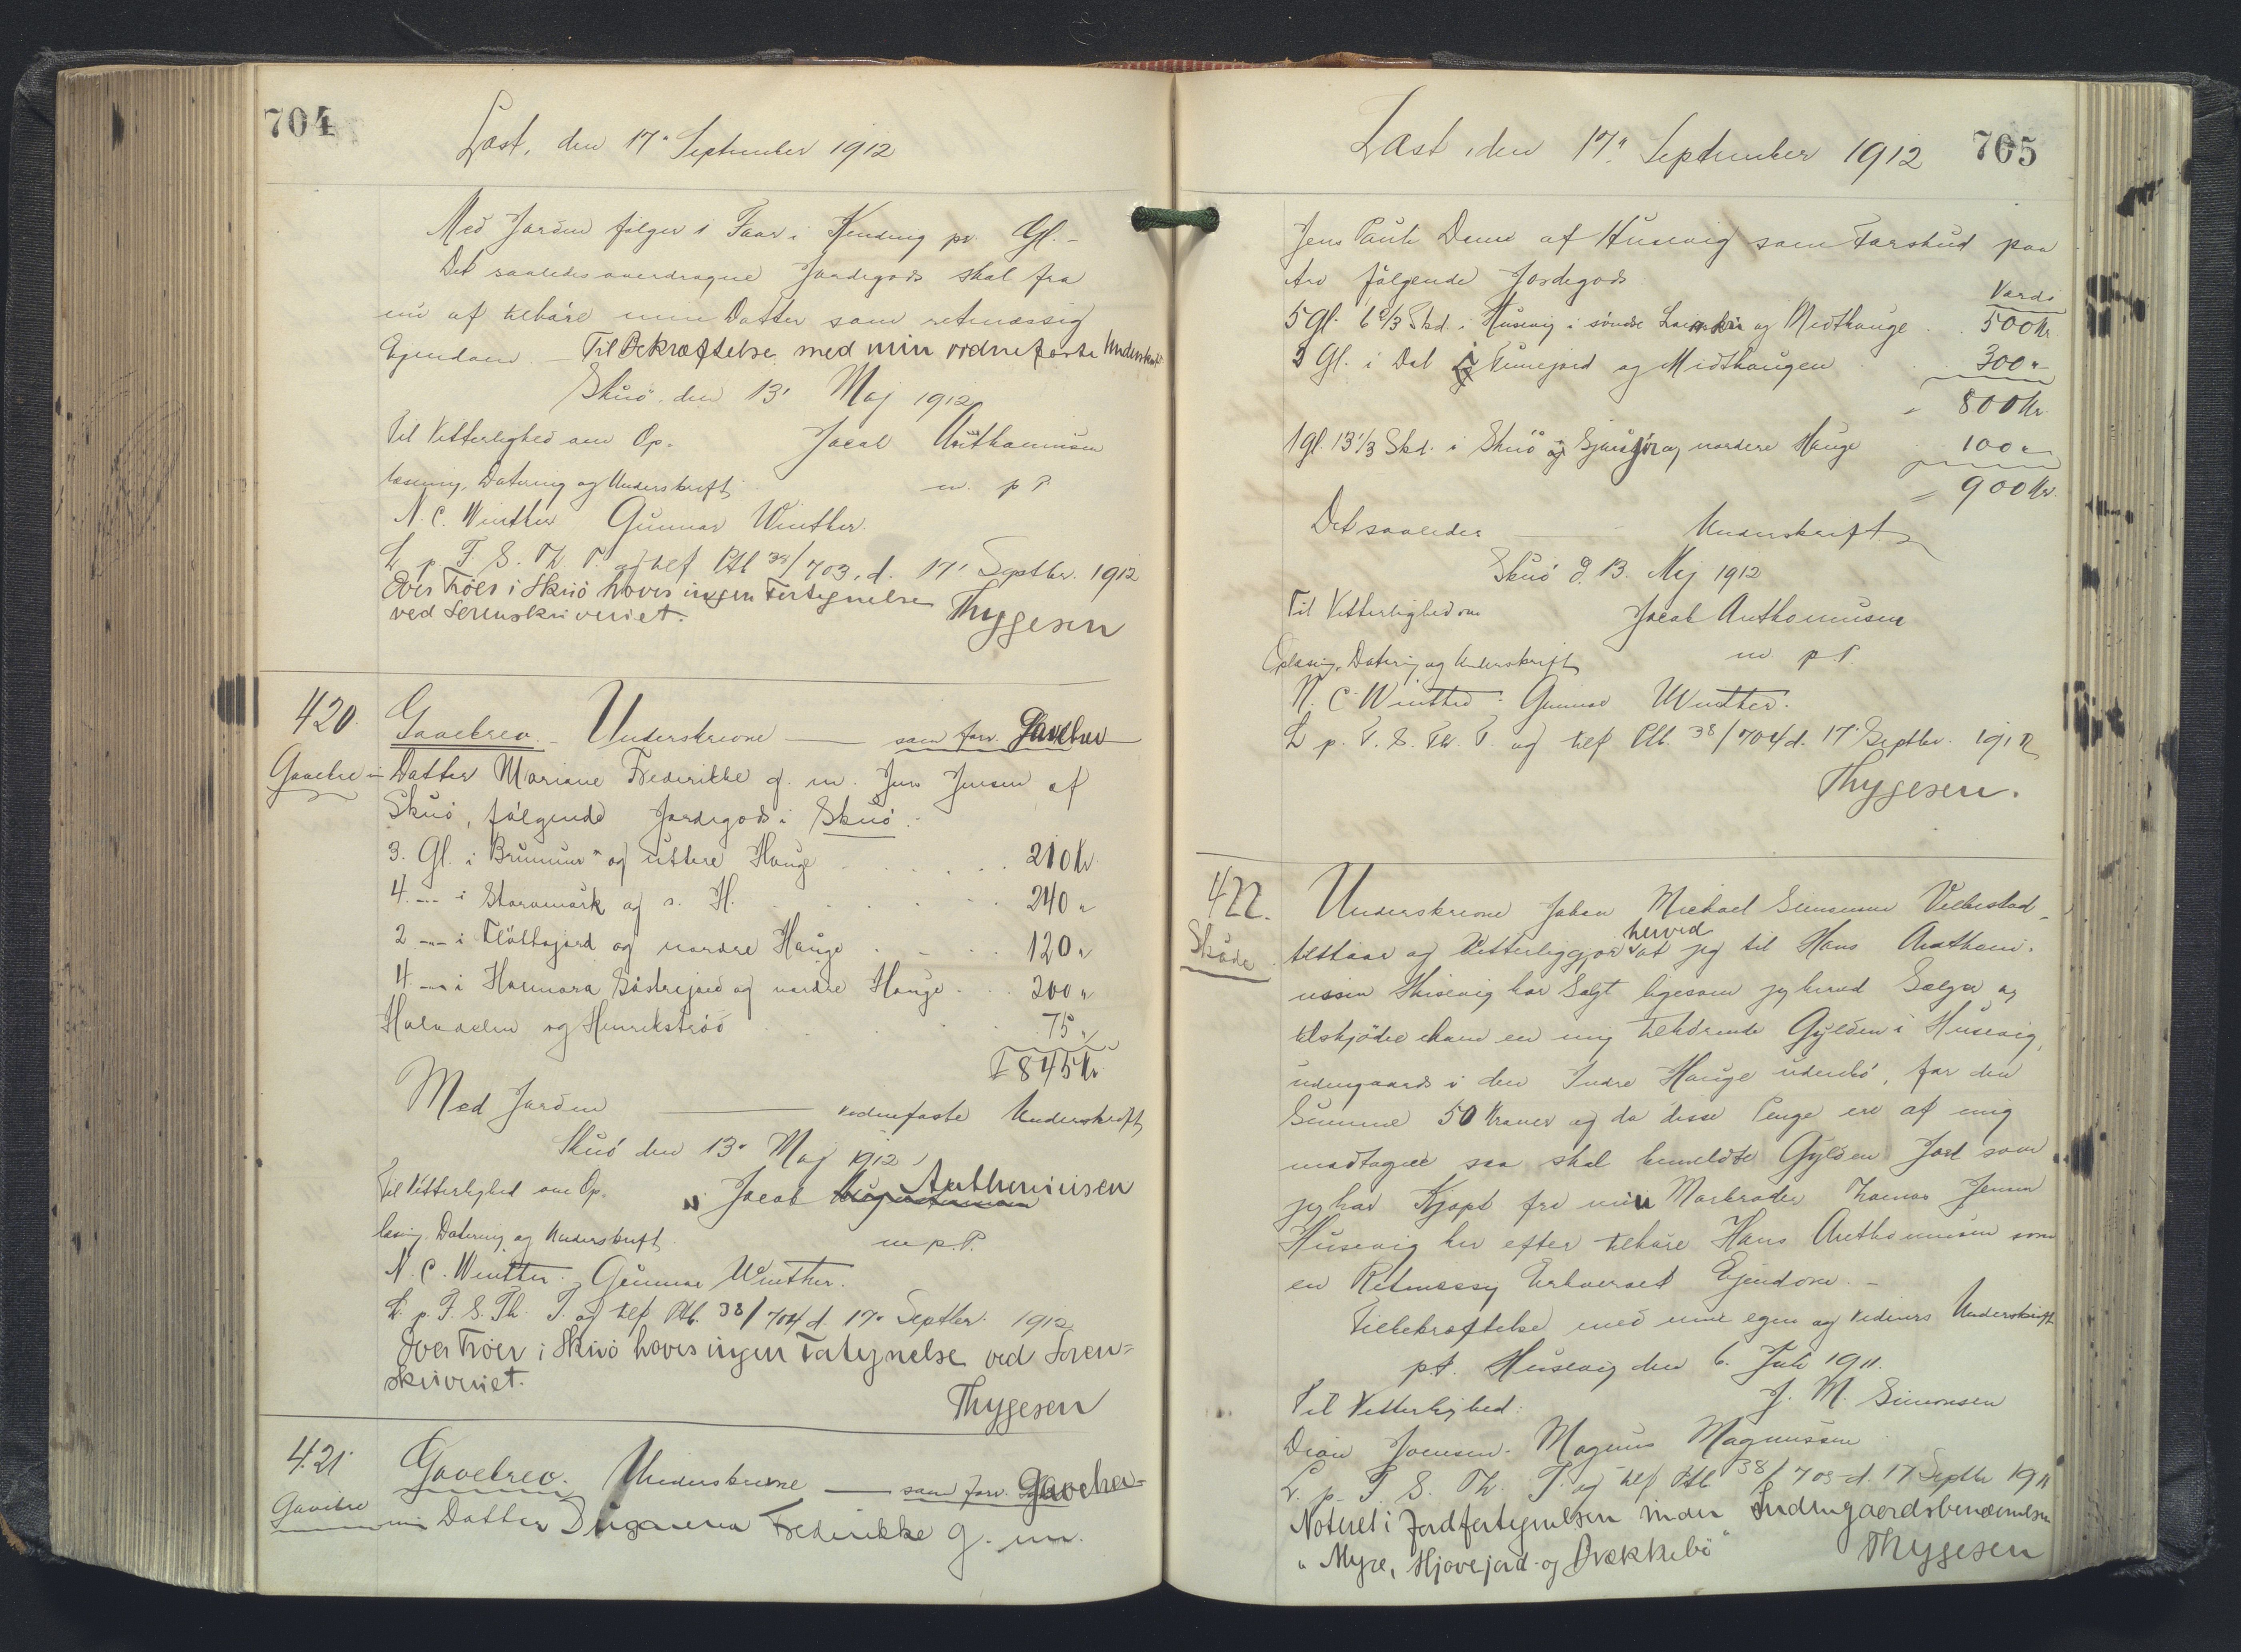 704
Læst, den 17' September 1912
Med Jorden følger 1 Faar i Kending pr. Gl. -
Det saaledes overdragne Jordegods skal fra
nu af tilhøre min Datter som retmæssig
Ejendom - Til Bekræftelse med min vidnefaste Underskrift
Skuö, den 13' Maj 1912
Til Vitterlighed om Op- Jacob Anthoniusen
læsning, Datering og Underskrift m. p P.
N. C. Winther Gunnar Winther.
L. p. F. S. Th. T. og tilf. Ptb 38/703, d. 17' Septbr. 1912
Over Tröer i Skuö haves ingen Fortegnelse
ved Sorenskriveriet. Thygesen
420. Gavebrev. - Underskrevne — som forr. Gavebrev
Gavebrev min Datter Mariane Frederikke g. m. Jens Jensen af
Skuö, følgende Jordegods i Skuö:
3. Gl. i Brunnur og uttere Hauge 210 Kr.
4. — i Storamörk og s. H. 240 "
2 — i Flöttajord og nordre Hauge 120 "
4 — i Hamara Göstrejord og nordre Hauge 200 "
Halvdelen og Henrikströö 75 "
= 845 Kr
Med Jorden — vidnefaste Underskrift
Skuö den 13' Maj 1912
Til Vitterlighed om Op- Jacob Anthoniusen
læsning, Datering og Underskrift m. p. P.
N. C. Winther. Gunnar Winther.
L. p. F. S. Th. T. og tilf. Ptb. 38/704 d. 17' Septbr. 1912
Over Tröer i Skuö haves ingen Fortegnelse ved Soren=
skriveriet.
Thygesen
421. Gavebrev. Underskrevne — som forr. Gavebrev=
Gavebre min Datter Frederikke g. m.
Læst, den 17' September 1912 705
Jens Pauli Dam af Husevig som Forskud paa
Arv følgende Jordegods Værdi
5 Gl. 6 2/3 Skd. i Husevig i söndre og Midthauge 500 Kr.
3 Gl. i Dal i Tunejord og Midthaugen 300 "
= 800 Kr.
1 gl. 13 1/3 Skd. i Skuö og nordere Hauge 100 "
= 900 Kr.
Det saaledes — Underskrift
Skuö d. 13. Maj 1912
Til Vitterlighed om Jacob Anthoniusen
Oplæsning, Datering og Underskrift m p P.
N. C. Winther. Gunnar Winther.
L. p. F. S. Th. T. og tilf. Ptb. 38/704 d. 17' Septbr. 1912
Thygesen.
422. Underskrevne Johan Michael Simonsen Velbestad
Skøde tilstaar og Vitterliggjør herved at jeg til Hans Anthoni-
ussen Husevig har Solgt ligesom jeg herved Sælger og
tilskjøder ham en mig tilhörende Gylden i Husevig,
udengaards i den Indre Hauge udenbö, for den
Summe 50 Kroner og da disse Penge ere af mig
modtagne saa skal bemeldte Gylden Jord som
jeg har Kjöpt fra min Morbroder Thomas Jensen
Husevig her efter tilhøre Hans Anthoniusen som
en Retmæssig Erhvervet Ejendom. -
Til bekræftelse med min egen og vidners Underskrift
p.t. Husevig den 6. Juli 1911.
Til Vitterlighed: J. M. Simonsen
Joensen. Magnus Magnussen
L. p. F. S. Th. T. og tilf. Ptb 38/705 d. 17 Septbr 1912
Noteret i Jordfortegnelsen under Indengaardsbenævnelsen
"Myre, Hjovejord og Brekkebö" Thygesen